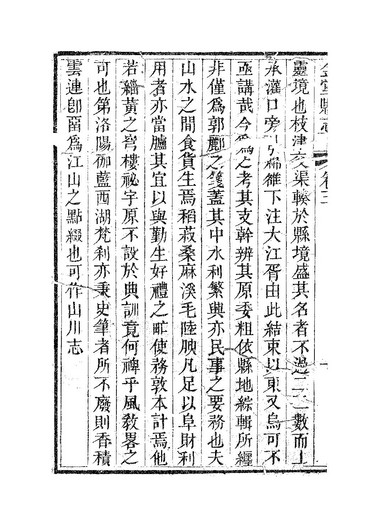 金堂縣志　卷三
靈境也枝津交渠轉於縣境盛其名者不過一二數而上
承灌口旁　綿雒下注大江胥由此結束以東又烏可不
亟講哉今爲之考其支幹辨其原委粗依縣地綜輯所纏
非僅爲郭酈之　蓋其中水利繁興亦民事之要務也夫
山水之間食貨生焉稻菽桑麻溪毛陸腴凡足以阜財利
用者亦當臚其宜以與勤生好禮之甿使務敦本計焉他
若緇黃之宮樓祕宇原不設於典訓竟何裨乎風敎畧之
可也第洛陽伽藍西湖梵刹亦秉史筆者所不廢則香積
雲連卽畱爲江山之點綴也可作山川志